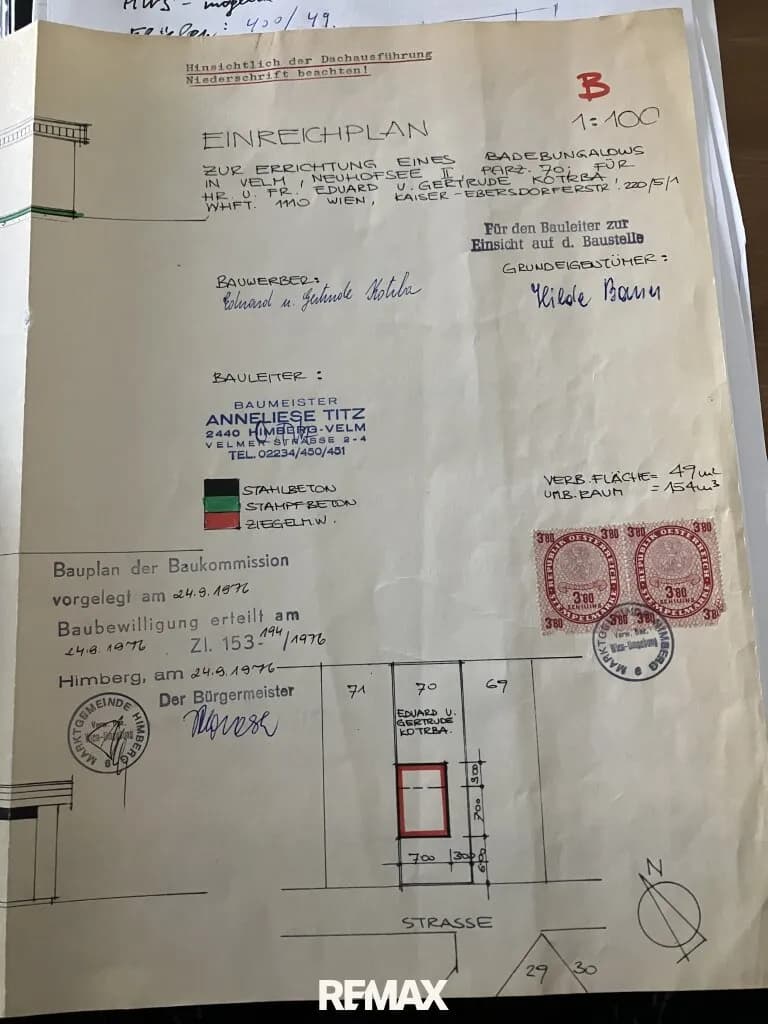 400/49.
Hinsichtlich der Dachausführung
Niederschrift beachten!
B
1:100
EINREICHPLAN
ZUR ERRICHTUNG EINES BADEBUNGALOWS
IN VELM, NEUHOFSEE II, PARZ. 70; FÜR
HR. U. FR. EDUARD U. GERTRUDE KOTRBA
WHFT. 1110 WIEN, KAISER-EBERSDORFERSTR. 220/5/1
Für den Bauleiter zur
Einsicht auf d. Baustelle
BAUWERBER:
Eduard u. Gertrude Kotrba
GRUNDEIGENTÜMER:
Hilde
BAULEITER:
BAUMEISTER
ANNELIESE TITZ
2440 HIMBERG-VELM
VELMER STRASSE 2-4
TEL. 02234/450/451
STAHLBETON
STAMPFBETON
ZIEGELM.W.
VERB. FLÄCHE = 49 m²
UMB. RAUM = 154 m³
REPUBLIK OESTERREICH
3'80
SCHILLING
STEMPELMARKE
REPUBLIK OESTERREICH
3'80
SCHILLING
STEMPELMARKE
MARKTGEMEINDE HIMBERG
Verw. Bez.
Wien-Umgebung
9
Bauplan der Baukommission
vorgelegt am 24.9.1976
Baubewilligung erteilt am
24.9.1976. Zl. 153-194/1976
Himberg, am 24.9.1976
Der Bürgermeister
MARKTGEMEINDE HIMBERG
Verw. Bez.
Wien-Umgebung
9
71
70
69
EDUARD U.
GERTRUDE
KOTRBA.
700
700
300
600
STRASSE
N
29
30
RE/MAX